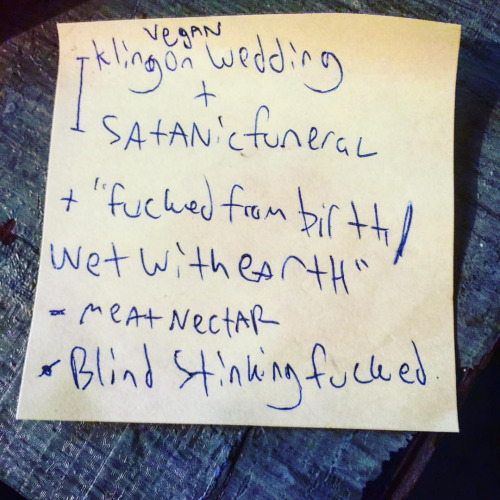 vegan
klingon wedding
+
SATANic funeraL
+ "fucked from birth/
wet with eARtH"
- MEAT NectAR
* Blind Stinking fucked.